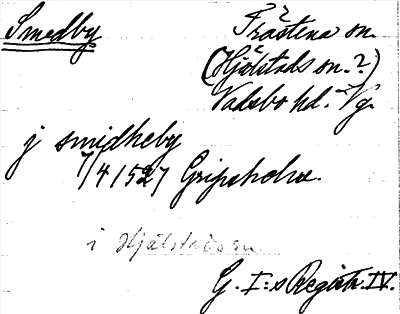 Smedby
Trästena sn.
(Hjälstads sn.?)
Vadsbo hd. Vg.
j smidheby
7/4 1527 Gripsholm.
i Hjälstads sn.
G. I:s Registr. IV.